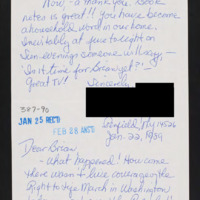 Now, - a thank you book
notes is great!! You have become
a household word in our home.
Inevitably at five to eight on
Sun evenings someone will say, -
"Is it time for Brian yet?" -
Great TV! Sincerely
387-90
JAN 25 REC'D
FEB 28 ANS'D
Penfield, NY 14526
Jan. 22, 1989
Dear Brian
- What happened! How come
there wasn't live coverage of the
Right to Life March in Washington